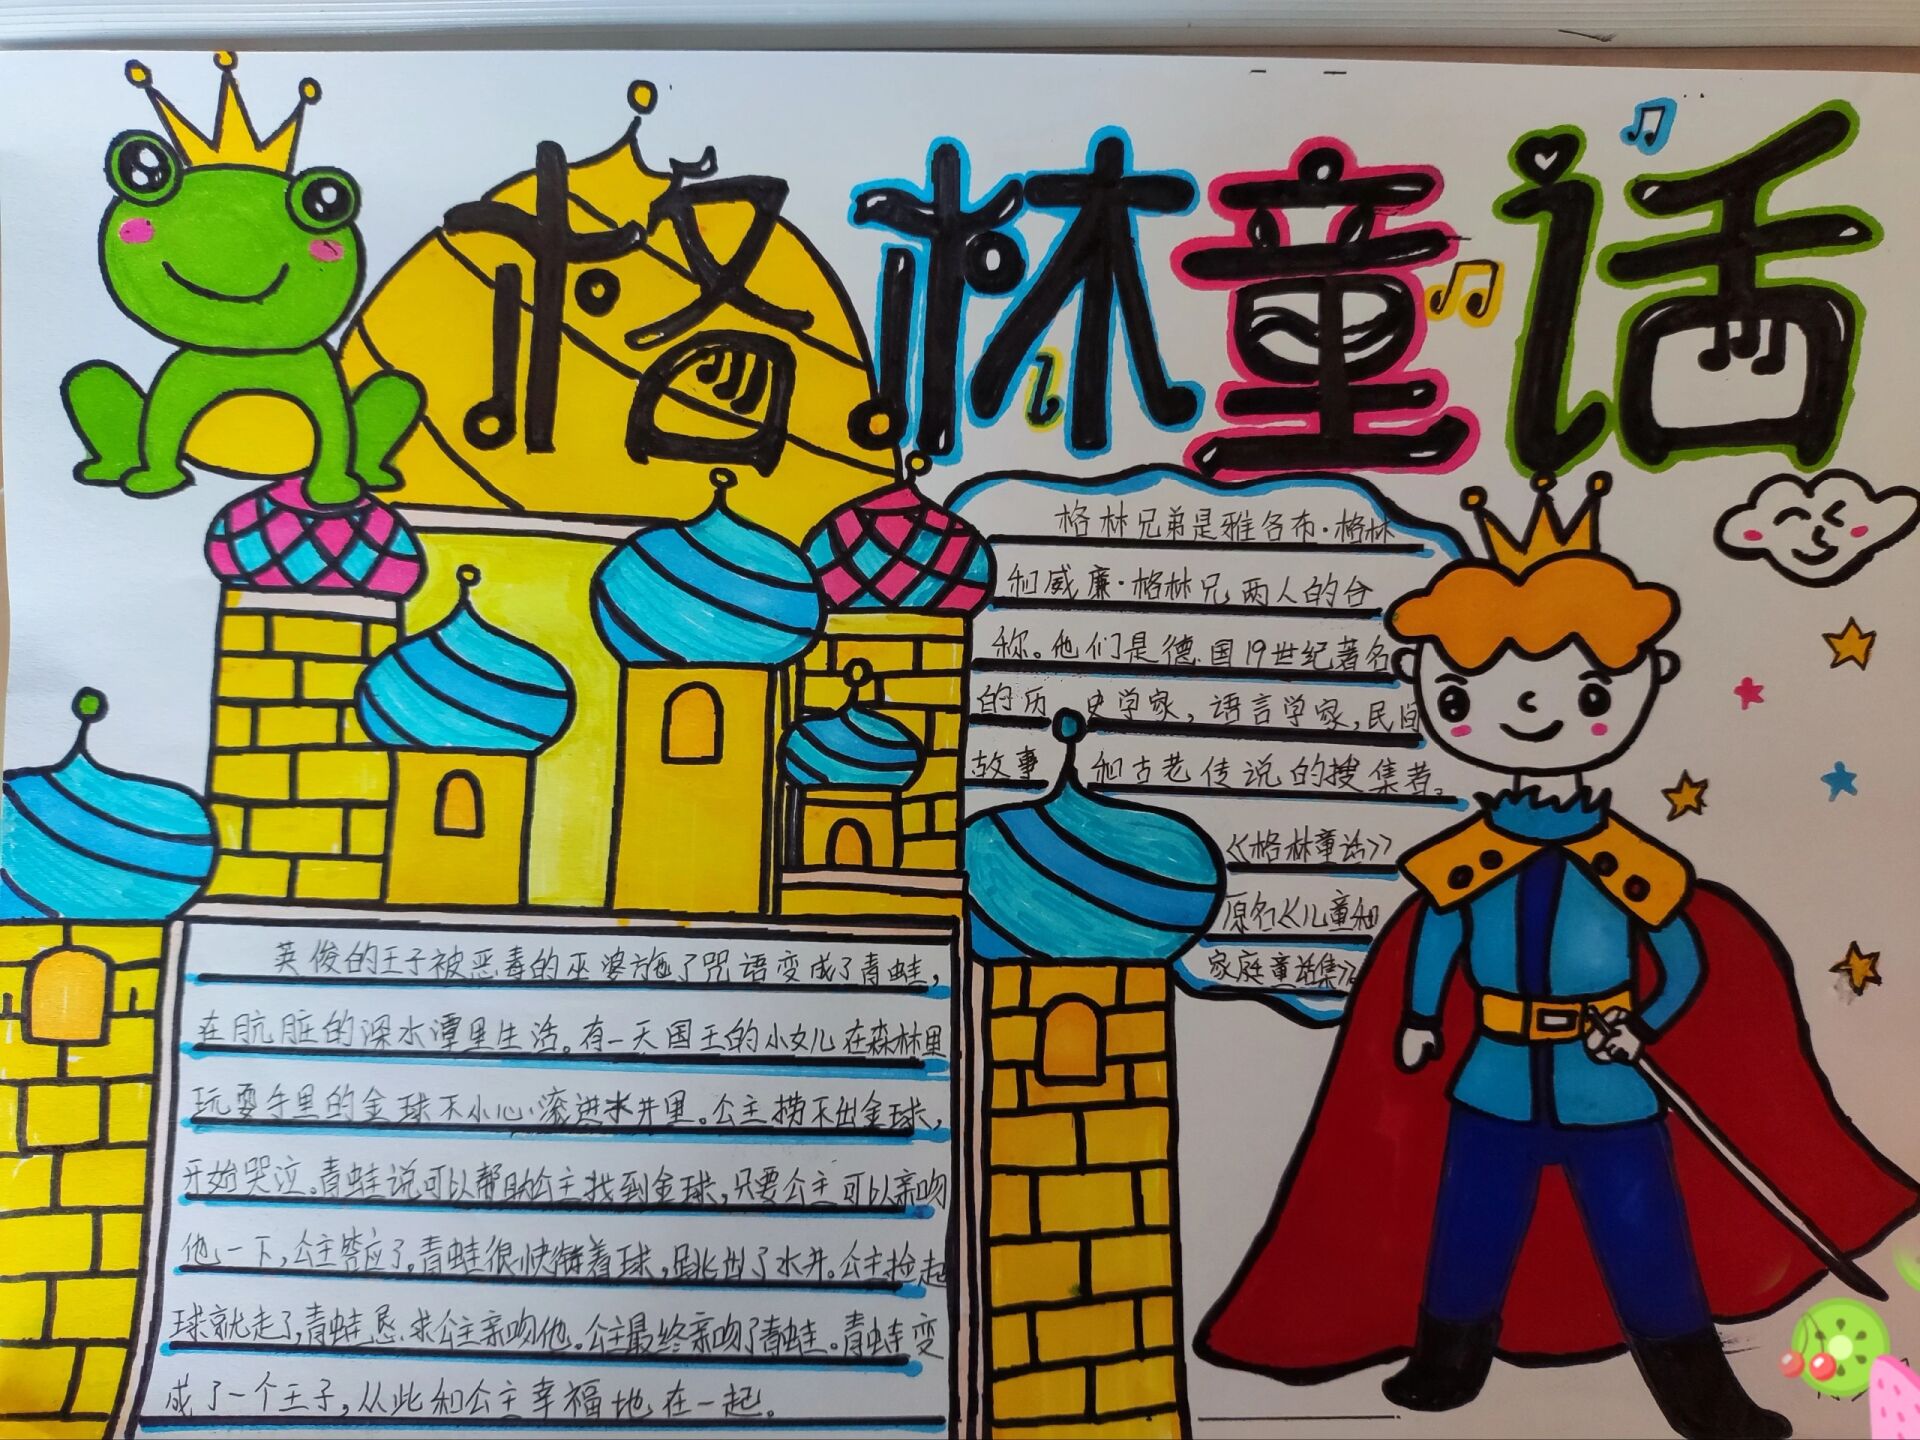 格林童话
格林兄弟是雅各布·格林
和威廉·格林兄两人的合
称。他们是德国19世纪著名
的历史学家，语言学家，民间
故事和古老传说的搜集者。
《格林童话》
原名《儿童和
家庭童话集》
英俊的王子被恶毒的巫婆施了咒语变成了青蛙，
在肮脏的深水潭里生活。有一天国王的小女儿在森林里
玩耍手里的金球不小心滚进水井里。公主捞不出金球，
开始哭泣。青蛙说可以帮助公主找到金球，只要公主可以亲吻
他一下，公主答应了。青蛙很快衔着球，跳出了水井。公主捡起
球就走了，青蛙恳求公主亲吻他。公主最终亲吻了青蛙。青蛙变
成了一个王子，从此和公主幸福地在一起。